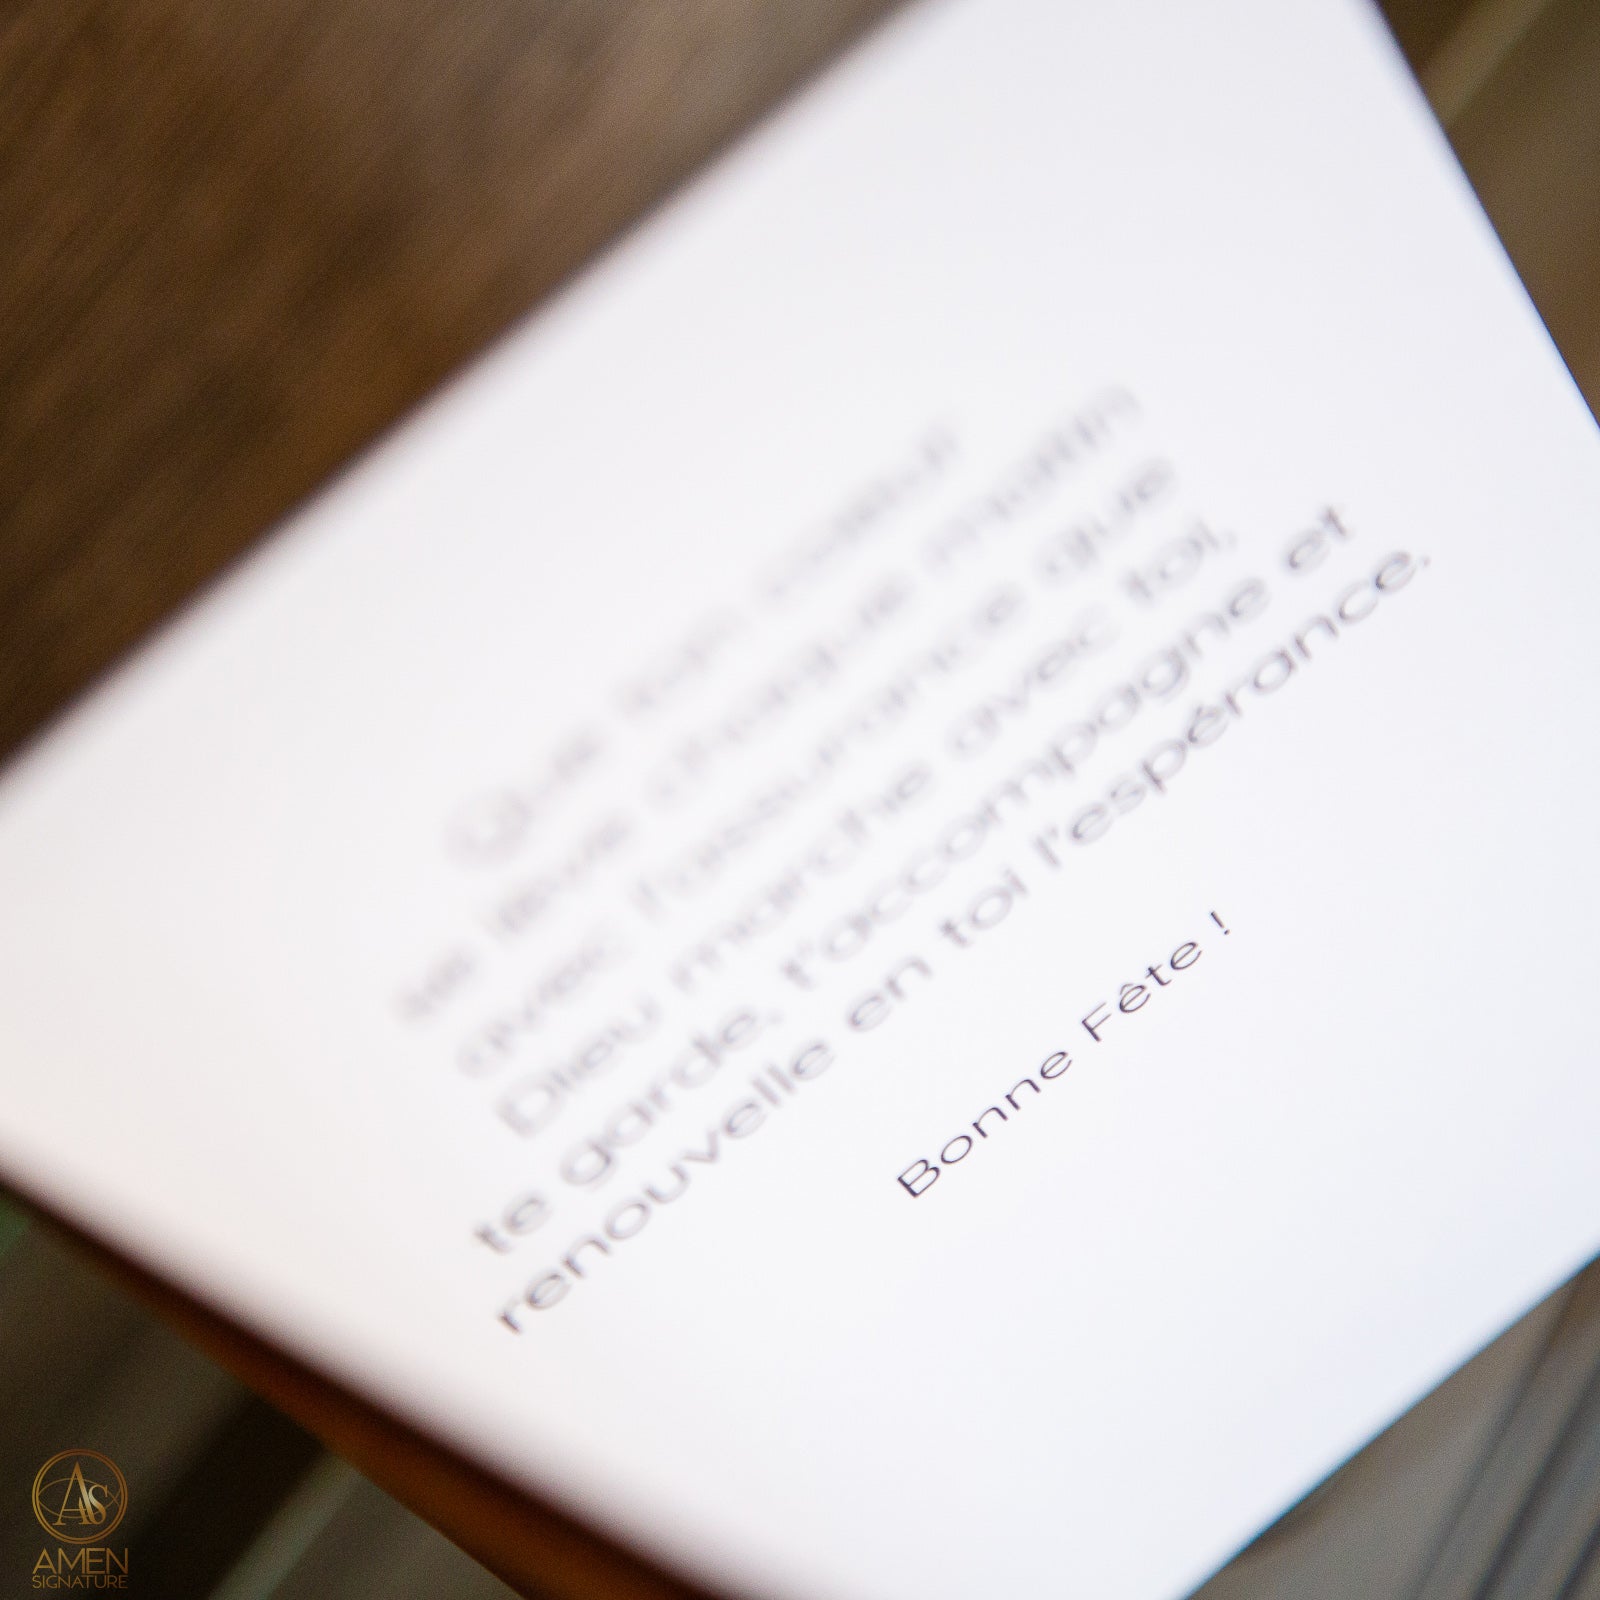 Que ton coeur
se lève chaque matin
avec l'assurance que
Dieu marche avec toi,
te garde, t'accompagne et
renouvelle en toi l'espérance.
Bonne Fête !
AS
AMEN
SIGNATURE